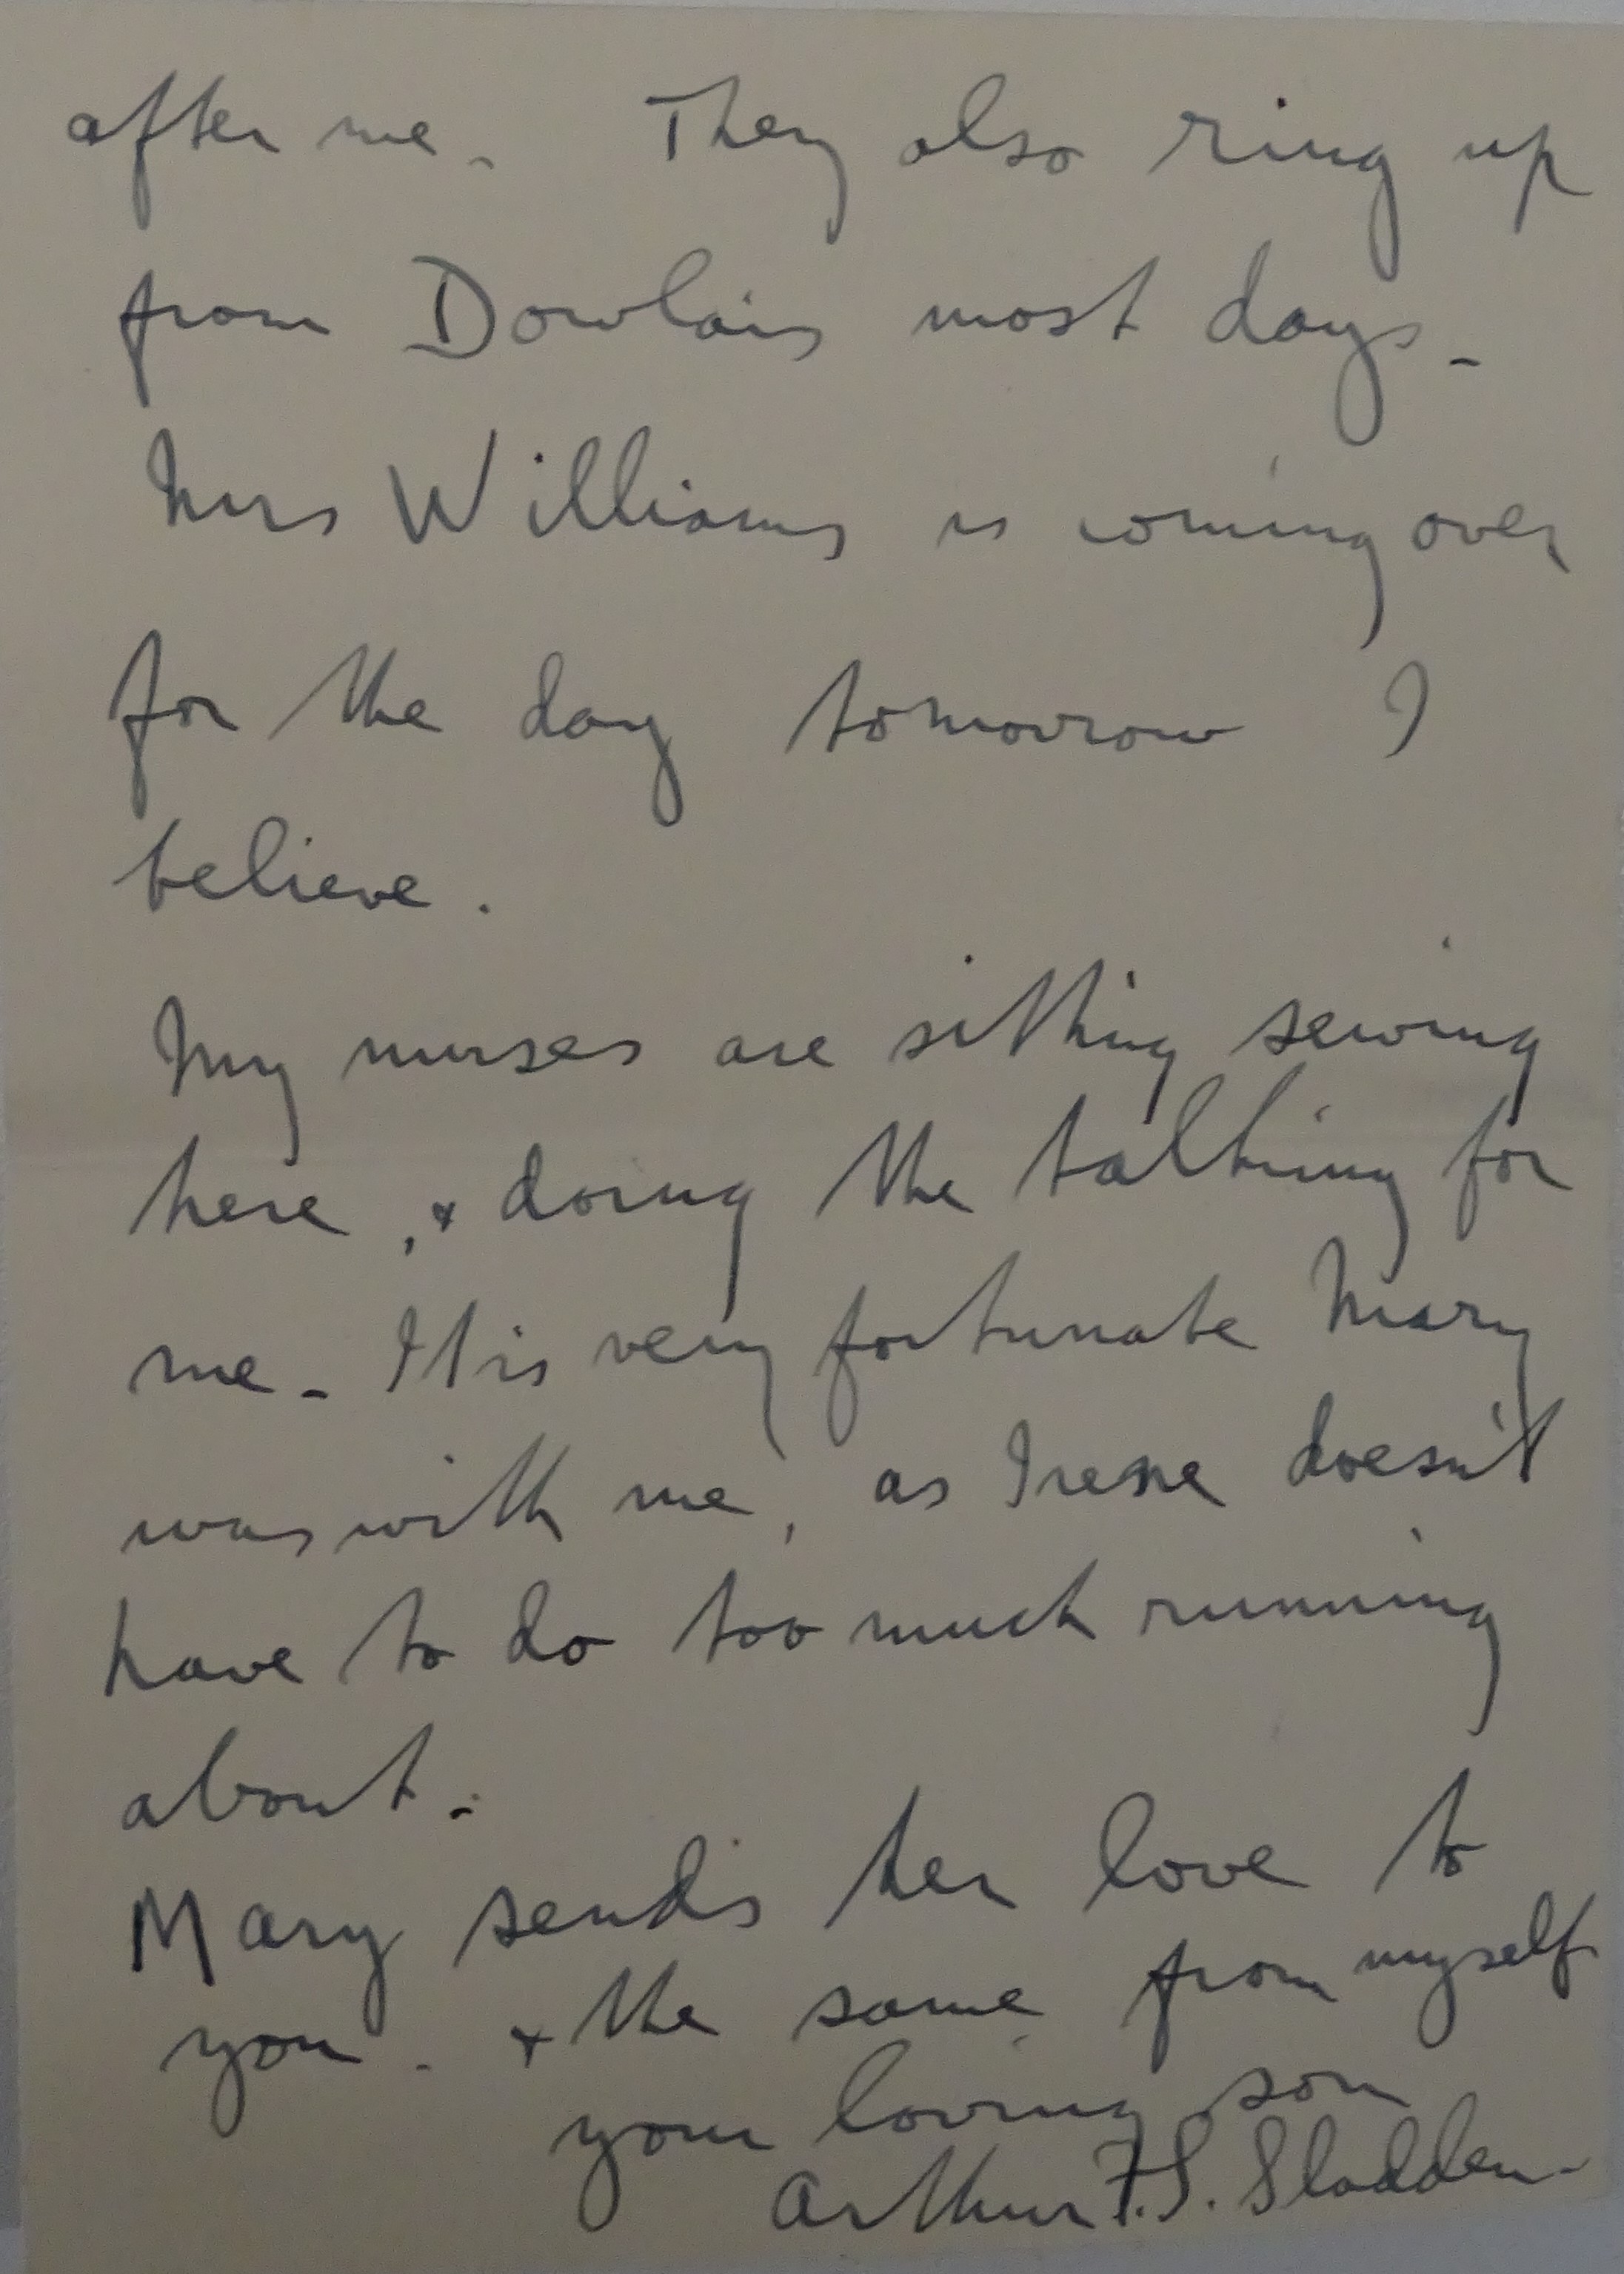 after me. They also ring up
from Dowlais most days.
Mrs Williams is coming over
for the day tomorrow I
believe.
My nurses are sitting sewing
here, & doing the talking for
me. It is very fortunate Mary
was with me, as Irene doesn't
have to do too much running
about.
Mary sends her love to
you. & the same from myself
your loving son
Arthur F.S. Sladden